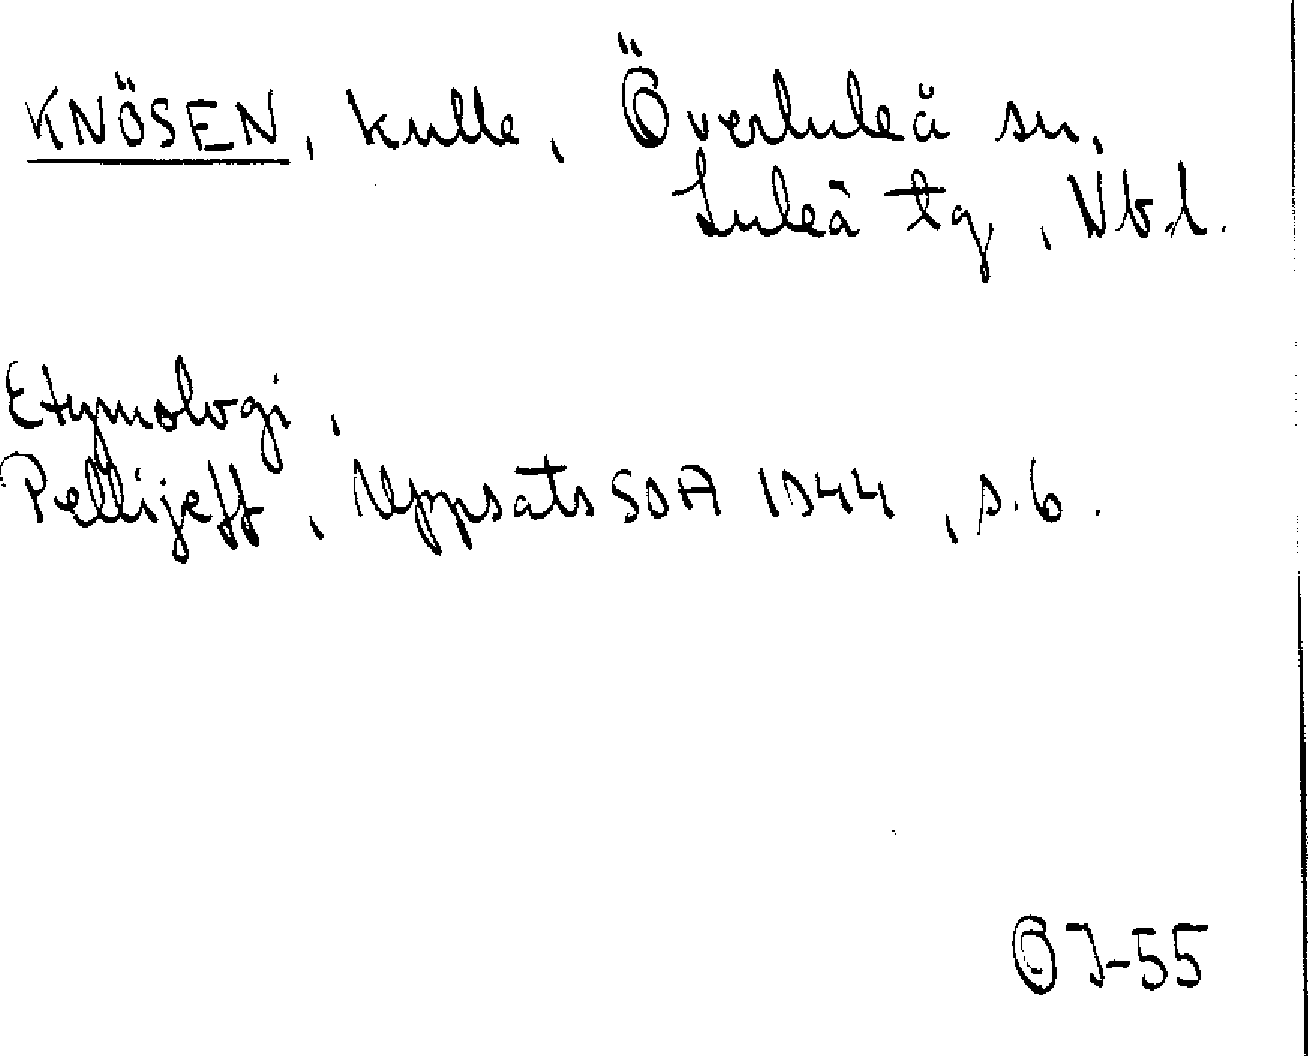 KNÖSEN, kulle, Överluleå sn,
Luleå tg, Nb.l.
Etymologi,
Pellijeff, Uppsats SOA 1944, s. 6.
ÖJ-55